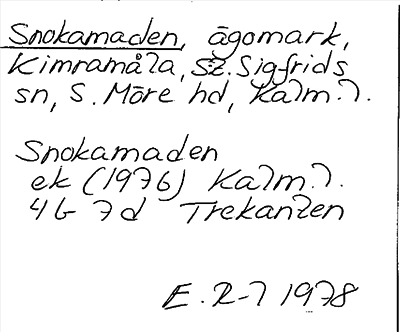 Snokamaden, ägomark,
Kimramåla, S:t Sigfrids
sn, S. Möre hd, Kalm. l.
Snokamaden
ek (1976) Kalm. l.
4 G 7 d Trekanten
E. R-l 1978